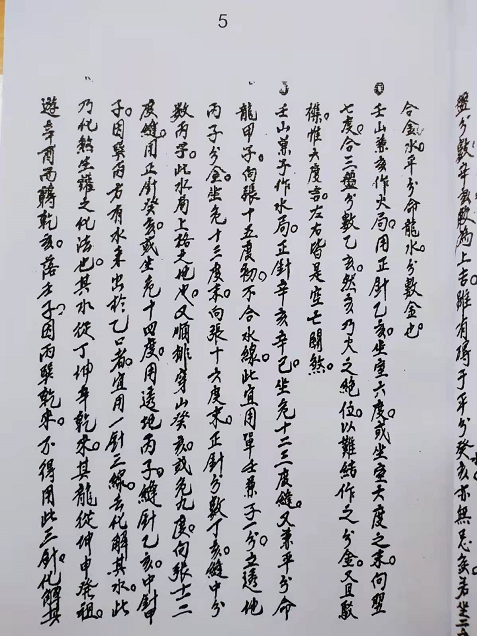 5
盤分數平亥數為上吉雖有碍于平分癸亥亦無忌亥若坐二
合金水平分命龍水分數金也
壬山兼亥作火局用正針乙亥坐室六度或坐室六度之末向翌
七度合三盤分數乙亥然亥乃火之絕位以難結作之分金又且駁
襍惟六度言左右皆是空亡關煞
壬山兼子作水局正針辛亥辛巳坐危十二三度縫又兼平分命
龍甲子向張十五度初不合水線此宜用單壬兼子一分立透地
丙子分金坐危十三度末向張十六度末正針分數丁亥縫中分
數丙子此水局上格之地也又順排穿山癸亥或危九度向張十二
度縫用正針癸亥或坐危十四度用透地丙子縫針乙亥中針甲
子因與丙方有水來出於乙口者宜用一針三線去化解其水此
乃化煞生難之化法也其水從丁坤辛乾來其龍從坤申發祖
遊辛酉兩轉乾亥落壬子因丙與乾來不得用此三針化解其